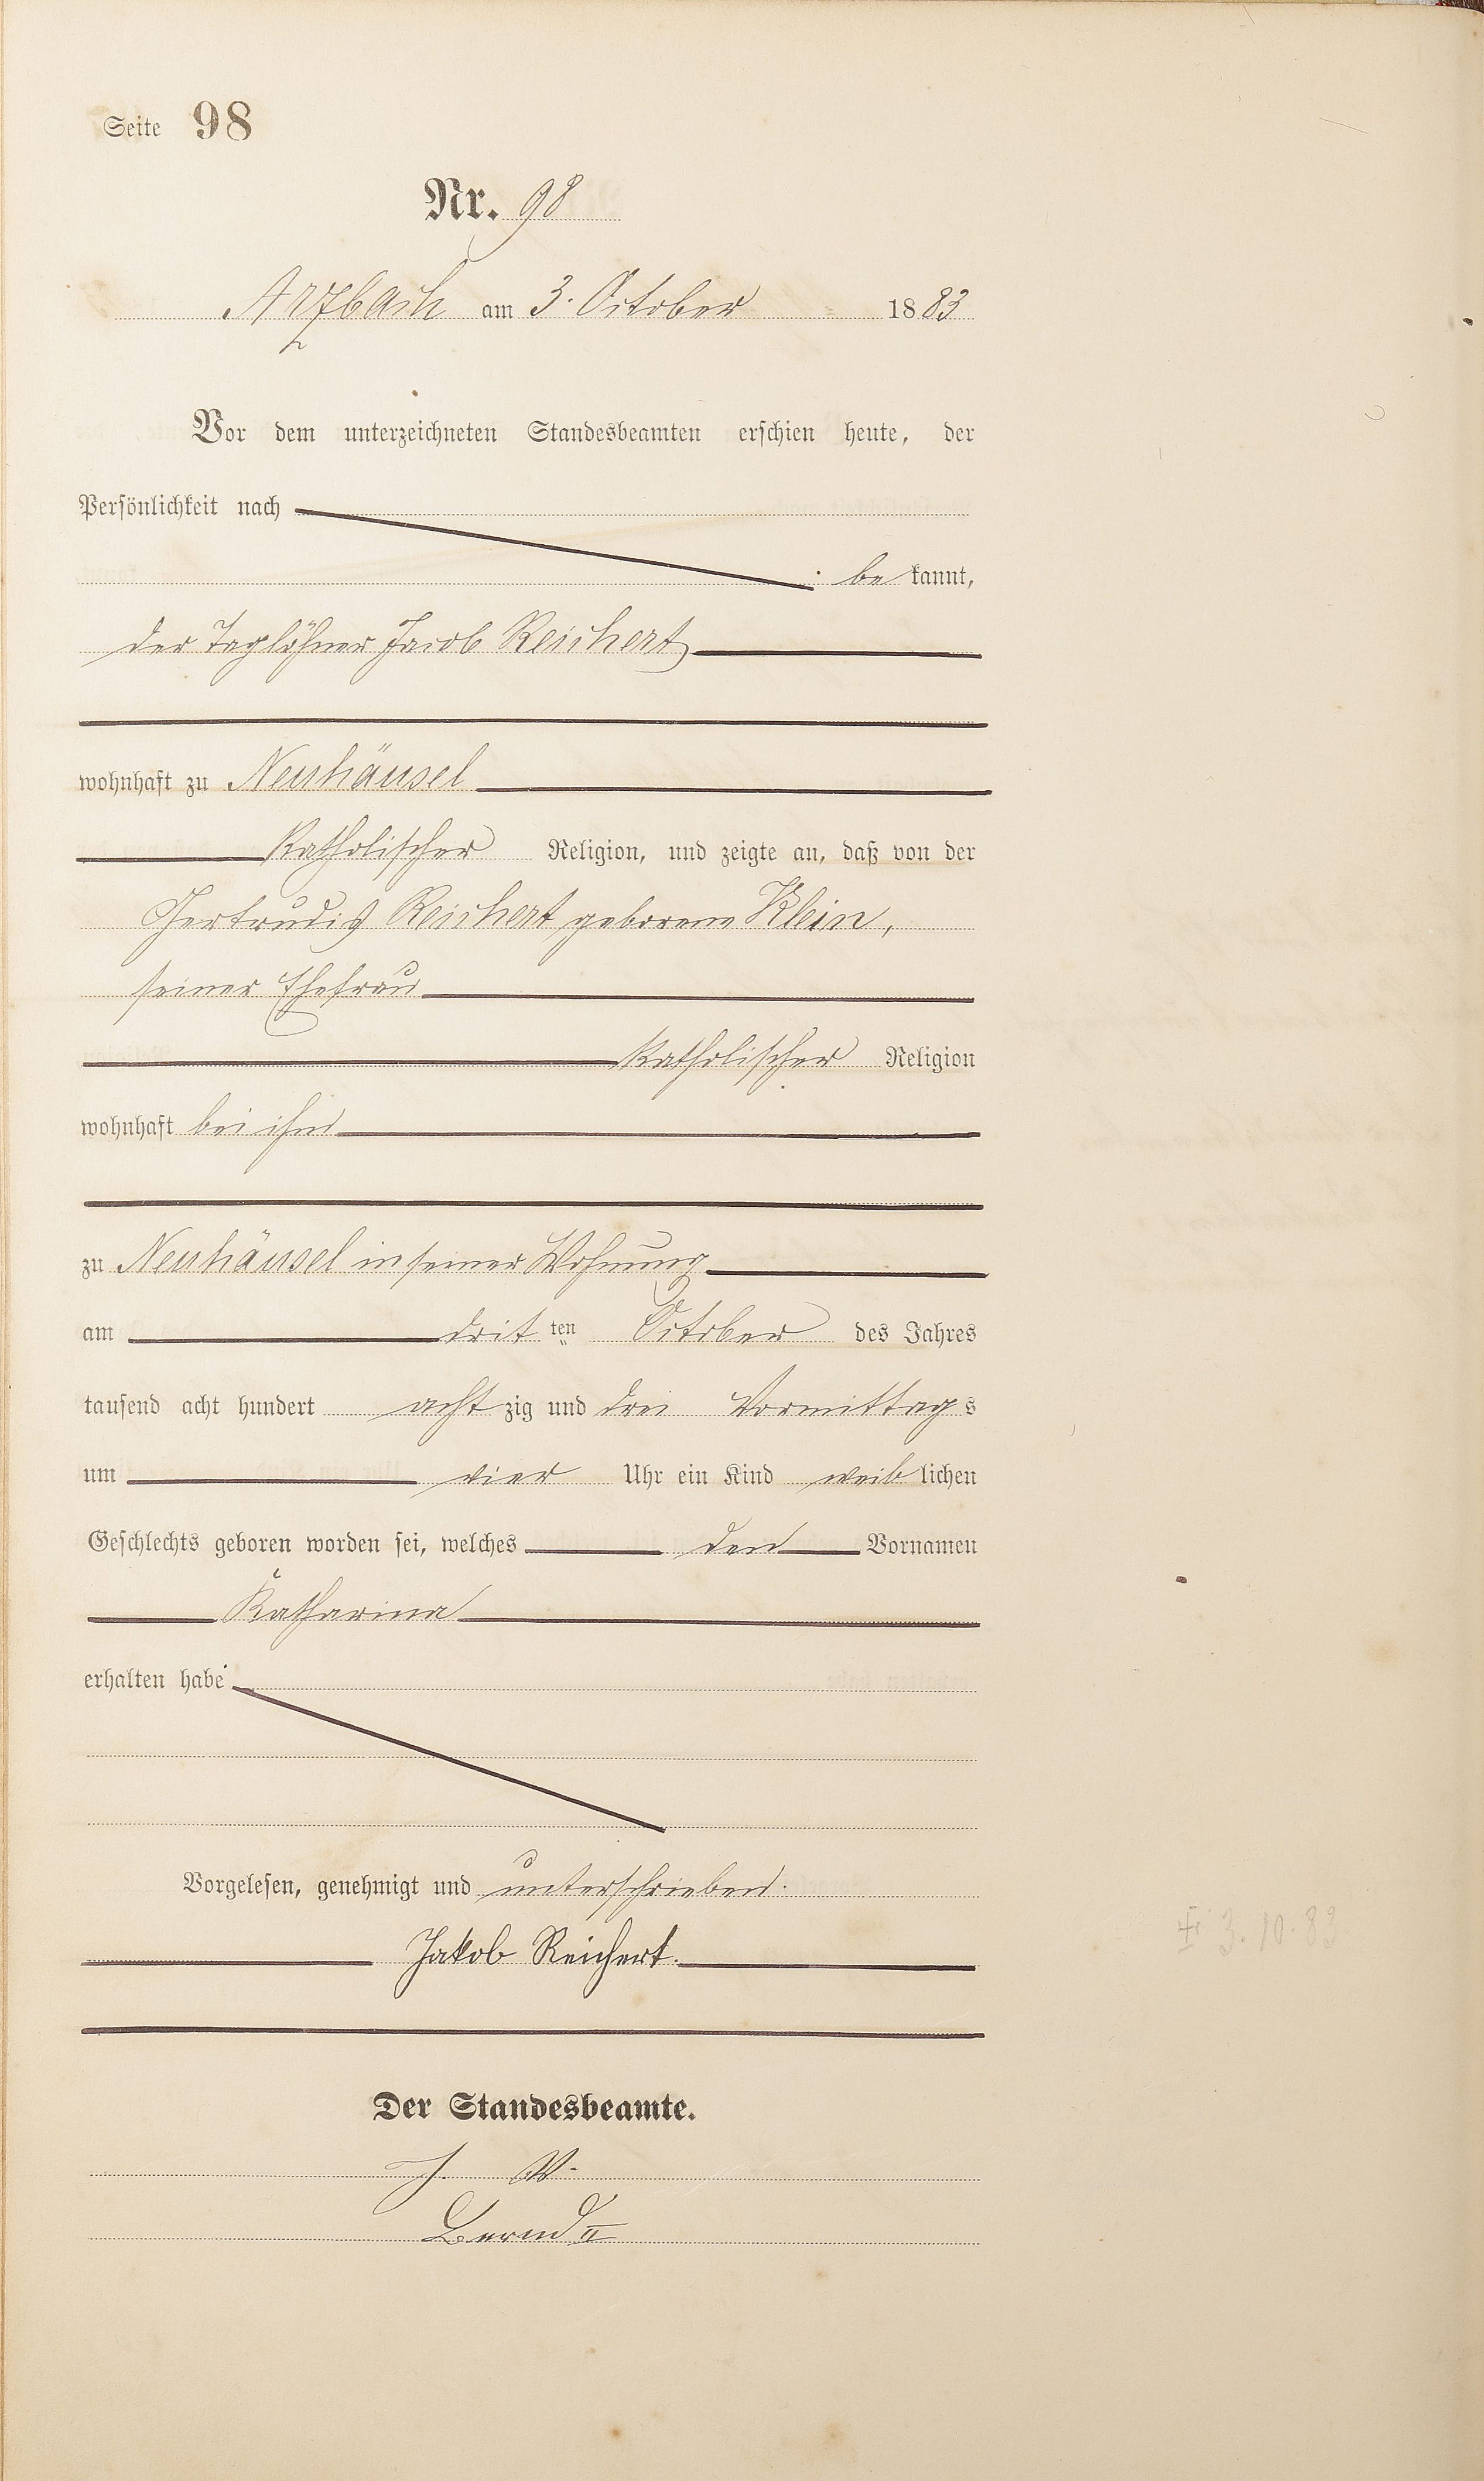 Seite 98
Nr. 98
Arzbach am 3. October 1883
Vor dem unterzeichneten Standesbeamten erschien heute, der
Persönlichkeit nach
bekannt,
der Taglöhner Jacob Reichert
wohnhaft zu Neuhäusel
Katholischer Religion, und zeigte an, daß von der
Gertrudis Reichert geborene Klein,
seiner Ehefrau
Katholischer Religion
wohnhaft bei ihm
zu Neuhäusel in seiner Wohnung
am dritten October des Jahres
tausend acht hundert achtzig und drei Vormittags
um vier Uhr ein Kind weiblichen
Geschlechts geboren worden sei, welches den Vornamen
Katharina
erhalten habe
Vorgelesen, genehmigt und unterschrieben.
Jakob Reichert.
Der Standesbeamte.
J. V.
Bernd II
3.10.83